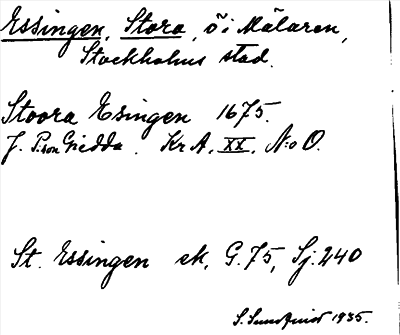 Essingen, Stora, ö i Mälaren,
Stockholms stad.
Stoora Esingen 1675.
J. P:son Giedda. Kr A, XX, N:o O.
St. Essingen ek, G. 75, Sj: 240
S. Sundquist 1935.